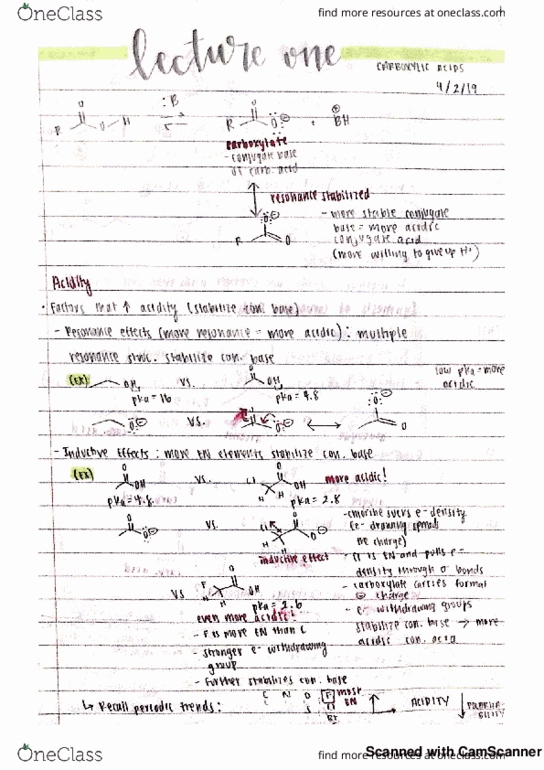 OneClass
find more resources at oneclass.com
lecture one
CARBOXYLIC ACIDS
4/2/19
:B
R O H O
R O O:⊖ + BH ⊕
carboxylate
- conjugate base
of carb. acid
resonance stabilized
R O O:⊖
- more stable conjugate
base = more acidic
conjugate acid
(more willing to give up H+)
Acidity
• Factors that ↑ acidity (stabilize con. base)
- Resonance effects (more resonance = more acidic): multiple
resonance struc. stabilize con. base
low pka = more
acidic
(EX) OH vs. OH
pka = 16 pka = 4.8
vs.
- Inductive Effects: more EN elements stabilize con. base
(EX) OH vs. Cl OH more acidic!
H H
pka = 4.8 pka = 2.8
vs. Cl
H H
inductive effect
- chlorine sucks e- density
(e- drawing spreads
neg charge)
- Cl is EN and pulls e-
density through σ bonds
- carboxylate carries formal
⊖ charge
- e- withdrawing groups
stabilize con. base → more
acidic con. acid
vs F OH
pka = 2.6
even more acidic!
- F is more EN than C
- stronger e- withdrawing
group
- Further stabilizes con. base
↳ Recall periodic trends:
C N O F most
EN
S Cl
Br
ACIDITY
find more resources at oneclass.com
OneClass
Scanned with CamScanner